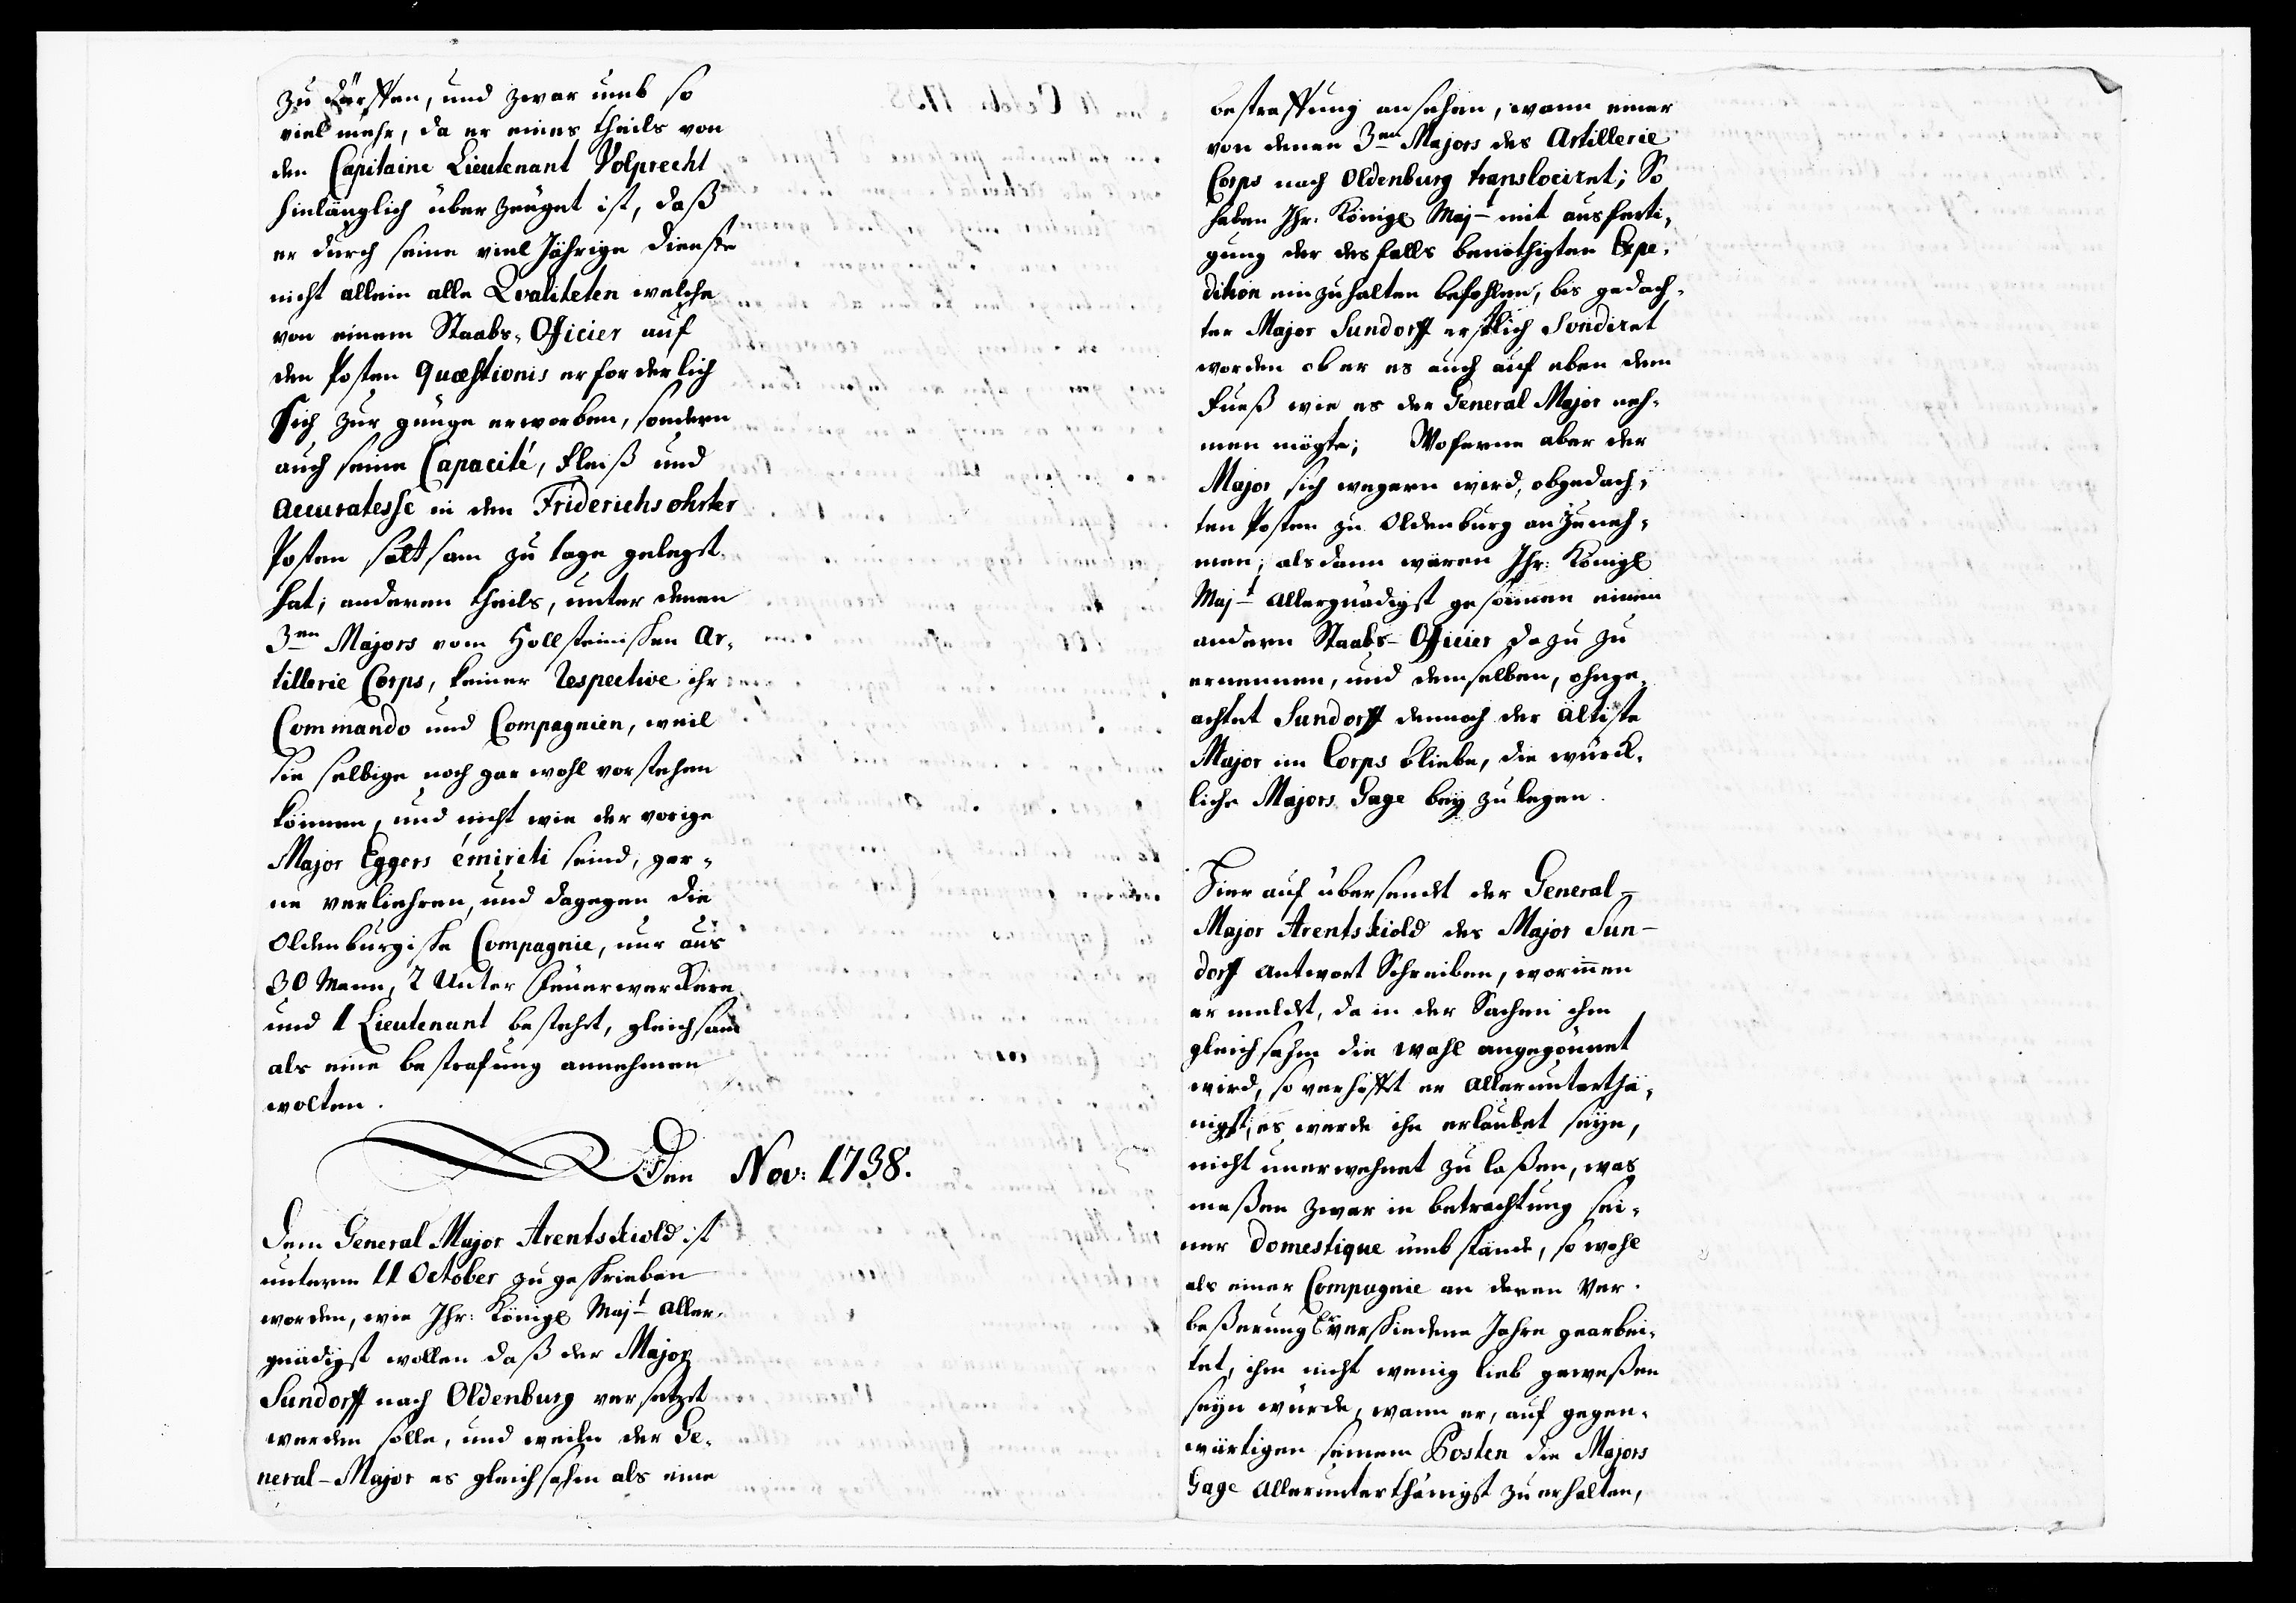 zu dürffen, und zwar umb so
viel mehr, da er eines theils von
den Capitaine Lieutenant Volprecht
hinlänglich überzeuget ist, daß
er durch seine viel Jährige Dienste
nicht allein alle Qvaliteten welche
von einem Staabs-Officier auf
den Posten quæstionis erforderlich
sich zur genüge erworben, sondern
auch seine Capacité, Fleiß und
accuratesse in den Friderichsohrter
Posten sattsam zu tage geleget
hat; anderen theils, unter denen
3en Majors vom Hollsteinischen Ar-
tillerie Corps, keiner respective ihr
Commando und Compagnien, weil
sie selbige noch gar wohl vorstehen
können, und nicht wie der vorige
Major Eggers émiriti seind, ger-
ne verliehren, und dagegen die
Oldenburgische Compagnie, nur aus
30 Mann, 2 Unter Feuerwerckern
und 1 Lieutenant bestehet, gleichsam
als eine bestrafung annehmen
wolten.
Den Nov: 1738.
Dem General Major Arentskiold ist
unterm 11 October zugeschrieben
worden, wie Ihr: Königl Majt aller-
gnädigst wollen daß der Major
Sundorff nach Oldenburg versetzet
werden solle, und weiln der Ge-
neral-Major es gleichsahm als eine
bestraffung ansehen, wann einer
von denen 3en Majors des Artillerie
Corps nach Oldenburg transloeiret; So
haben Ihr: Königl Majt mit ausferti-
gung der desfalls benöthigten Expe-
dition einzuhalten befohlen, bis gedach-
ter Major Sundorff erstlich sondiret
worden ob er es auch auf eben dem
Fueß wie es der General Major neh-
men mögte; Woferne aber der
Major sich wegern wird, obgedach-
ten Posten zu Oldenburg anzuneh-
men; alsdann wären Ihr: Königl
Majt allergnädigst gesonnen einen
andern Staabs-Officier dazu zu
ernennen, und demselben, ohnge-
achtet Sundorff dennoch der ältiste
Major im Corps bliebe, die würck-
liche Majors Gage bey zu legen.
Hierauf übersendet der General-
Major Arentskiold des Major Sun-
dorff antwort Schreiben, worinnen
er meldet, da in der Sachen ihm
gleichsahm die wahl angegönnet
wird, so verhoffet er allerunterthä-
nigst, es werde ihn erlaubet seyn,
nicht unerwehnet zu laßen, was
maßen zwar in betrachtung sei-
ner domestique umbstände, so wohl
als einer Compagnie an deren Ver-
beßerung Er verschiedene Jahre gearbei-
tet, ihm nicht wenig lieb geweßen
seyn würde, wann er, auf gegen-
wärtigen seinem Posten die Majors
Gage allerunterthänigst zu erhalten,